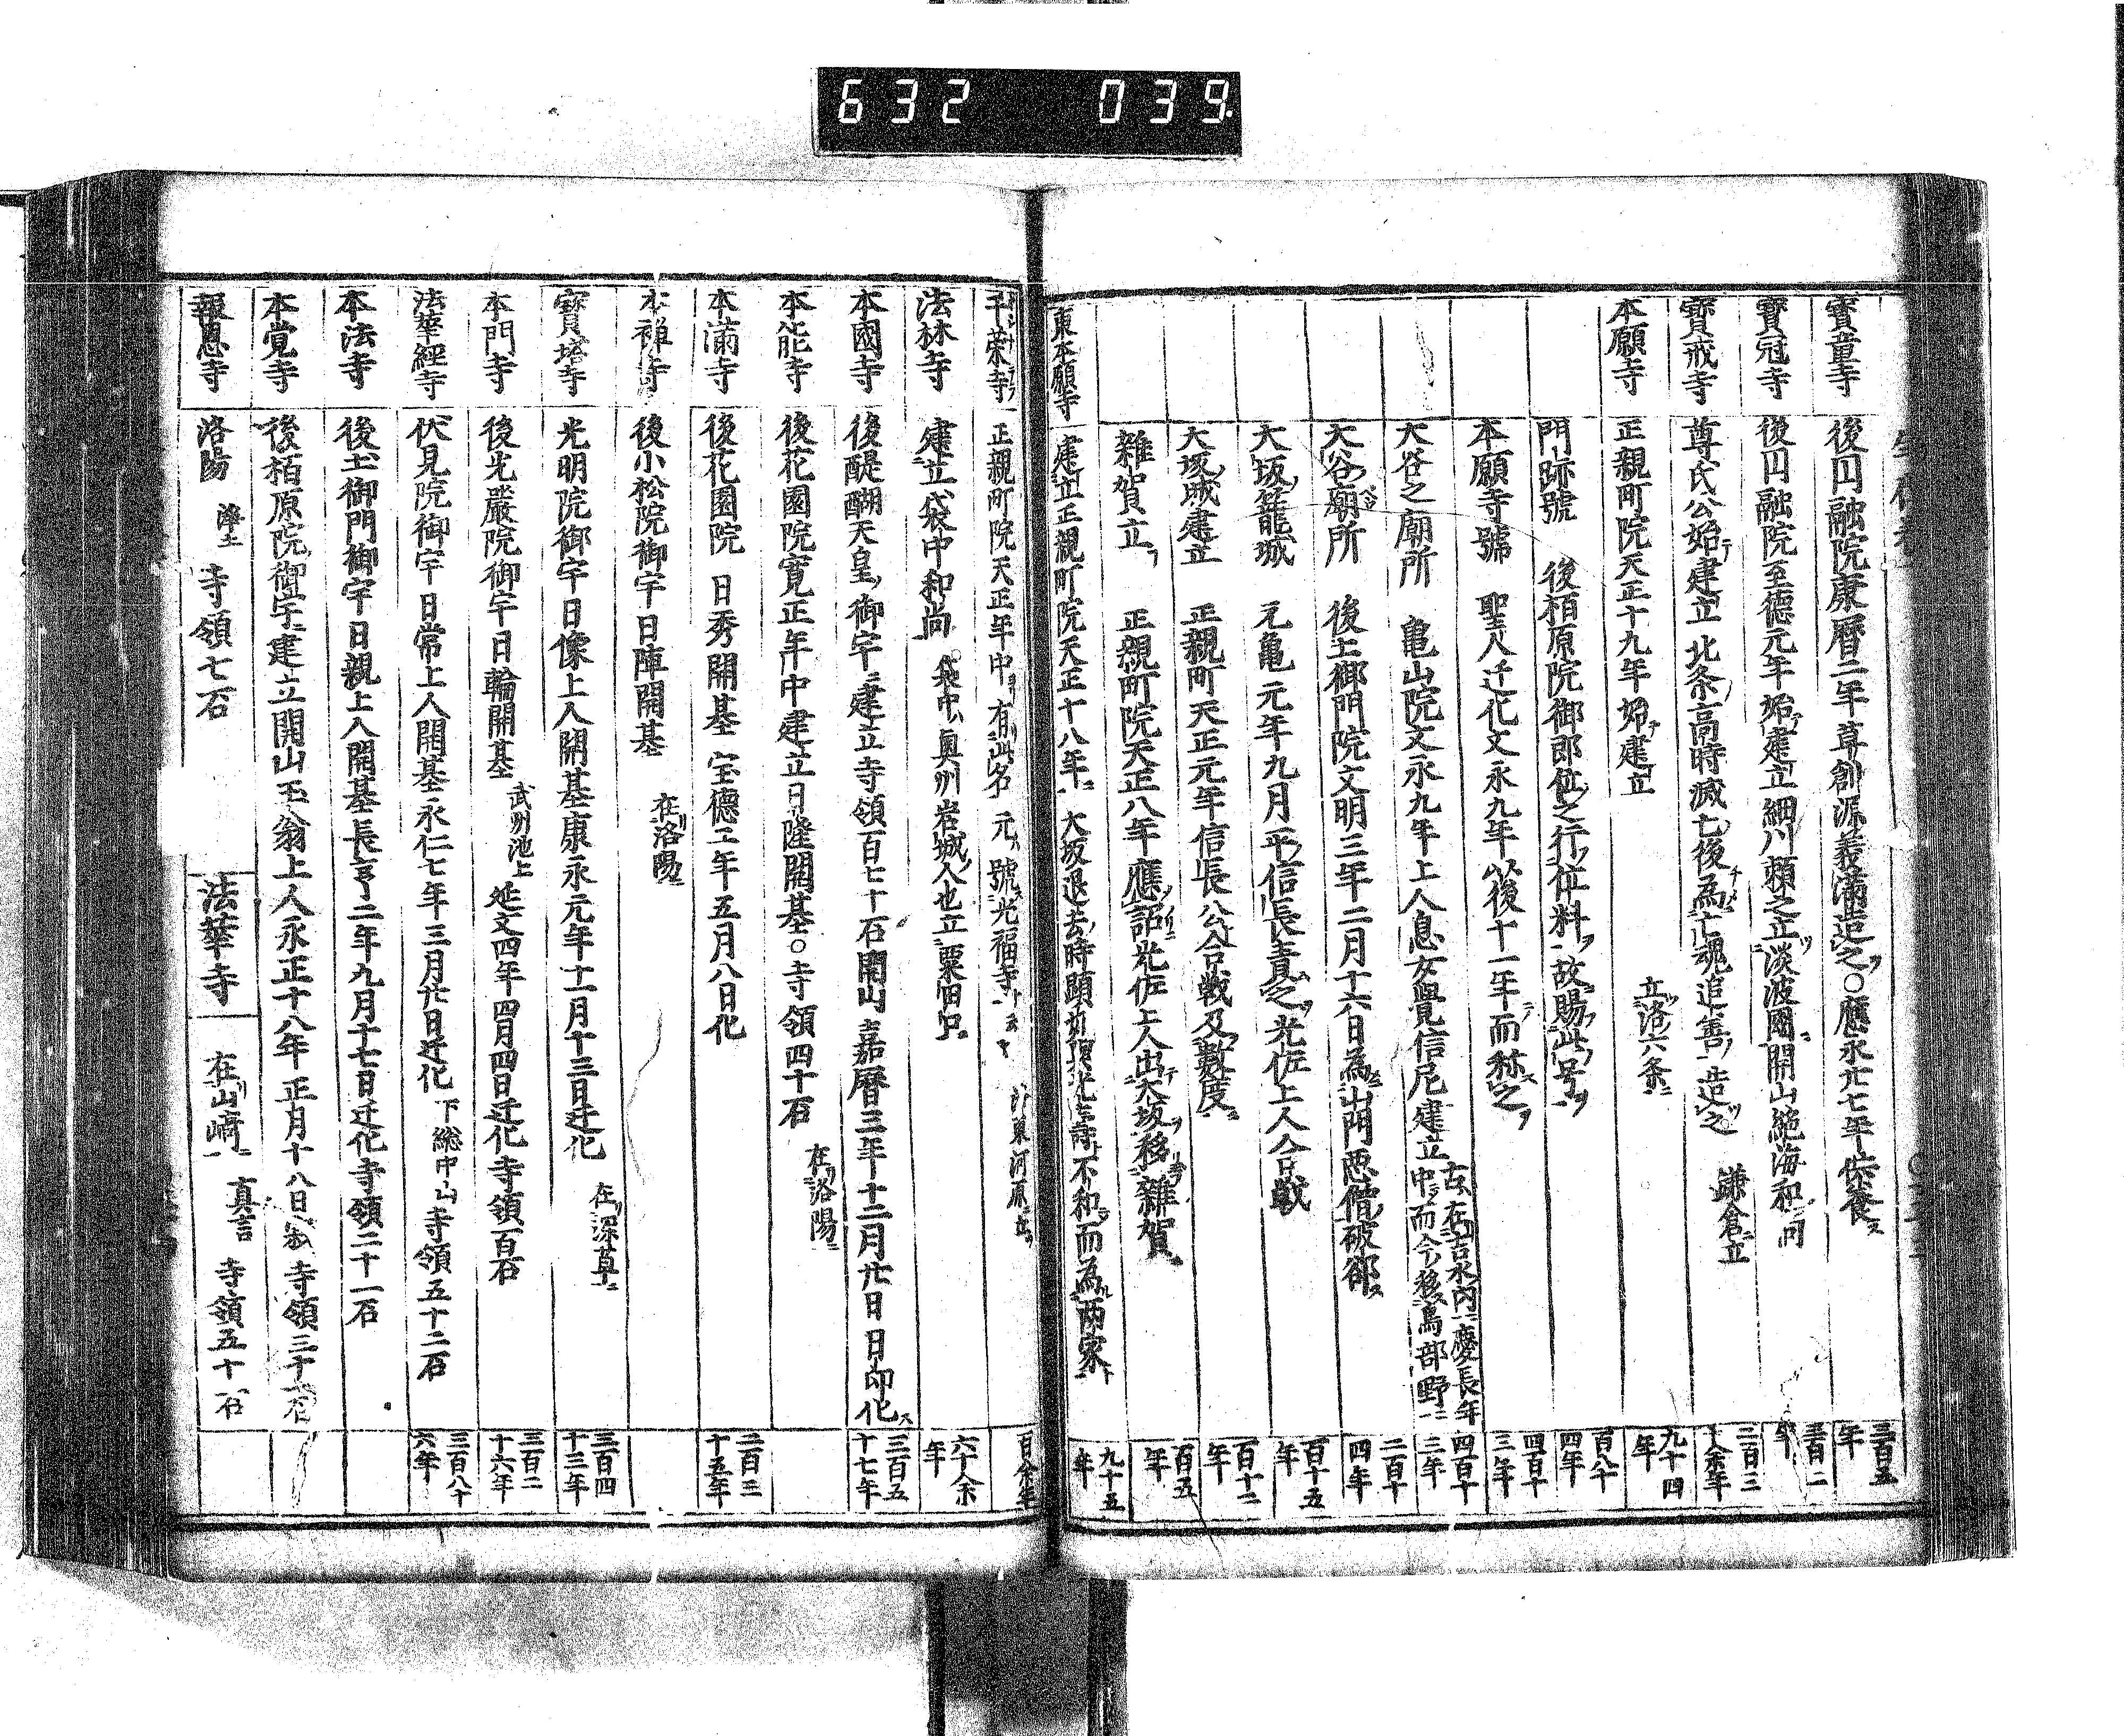 632 039
寳童寺 後円融院康暦二年草創源義満造之○應永廿七年保養 三百五年
寳冠寺 後円融院至德元年始建立細川頼之立淡波國開山絶海和尚 三百二年
寳戒寺 尊氏公始建立 北条高時滅亡後為亡魂追善造之 鎌倉立 二百三十余年
本願寺 正親町院天正十九年始建立 立洛六条 九十四年
門跡號 後栢原院御即位之行位料故賜此号 百八十四年
本願寺號 聖人迁化文永九年以後十一年而稱之 四百十三年
大谷之廟所 亀山院文永九年上人息女覺信尼建立 古在吉水内慶長年中而今移鳥部野 四百十二年
大谷廟所 後土御門院文明三年二月十六日為山門悪僧破郤 二百十四年
大坂籠城 元亀元年九月平信長責之光佐上人合戦 百十五年
大坂城建立 正親町天正元年信長公合戦及數度 百十二年
雑賀立 正親町院天正八年應詔光佐上人出大坂移雑賀 百五年
東本願寺 建立正親町院天正十八年 大坂退去時顕如與光壽不和而為両家 九十五年
干菜寺 正親町院天正年中有此名 元號光福寺 百余年
法林寺 建立袋中和尚 袋中奥州岩城人也立粟田口 六十余年
本國寺 後醍醐天皇御宇建立寺領百七十石開山嘉暦三年十二月廿日日印化 三百五十七年
本能寺 後花園院寛正年中建立日隆開基○寺領四十石 在洛陽
本滿寺 後花園院 日秀開基 宝德二年五月八日化 二百三十五年
本禅寺 後小松院御宇日陣開基 在洛陽
寳塔寺 光明院御宇日像上人開基康永元年十一月十三日迁化 在深草 三百四十三年
本門寺 後光嚴院御宇日輪開基 武州池上 延文四年四月四日迁化寺領百石 三百二十六年
法華經寺 伏見院御宇日常上人開基永仁七年三月廿日迁化 下総中山寺領五十二石 三百八十六年
本法寺 後土御門御宇日親上人開基長亨二年九月十七日迁化寺領二十一石
本覚寺 後栢原院御宇建立開山玉翁上人永正十八年正月十八日 寺領三十石
報恩寺 洛陽 淨土 寺領七石
法華寺 在山﨑 真言 寺領五十石